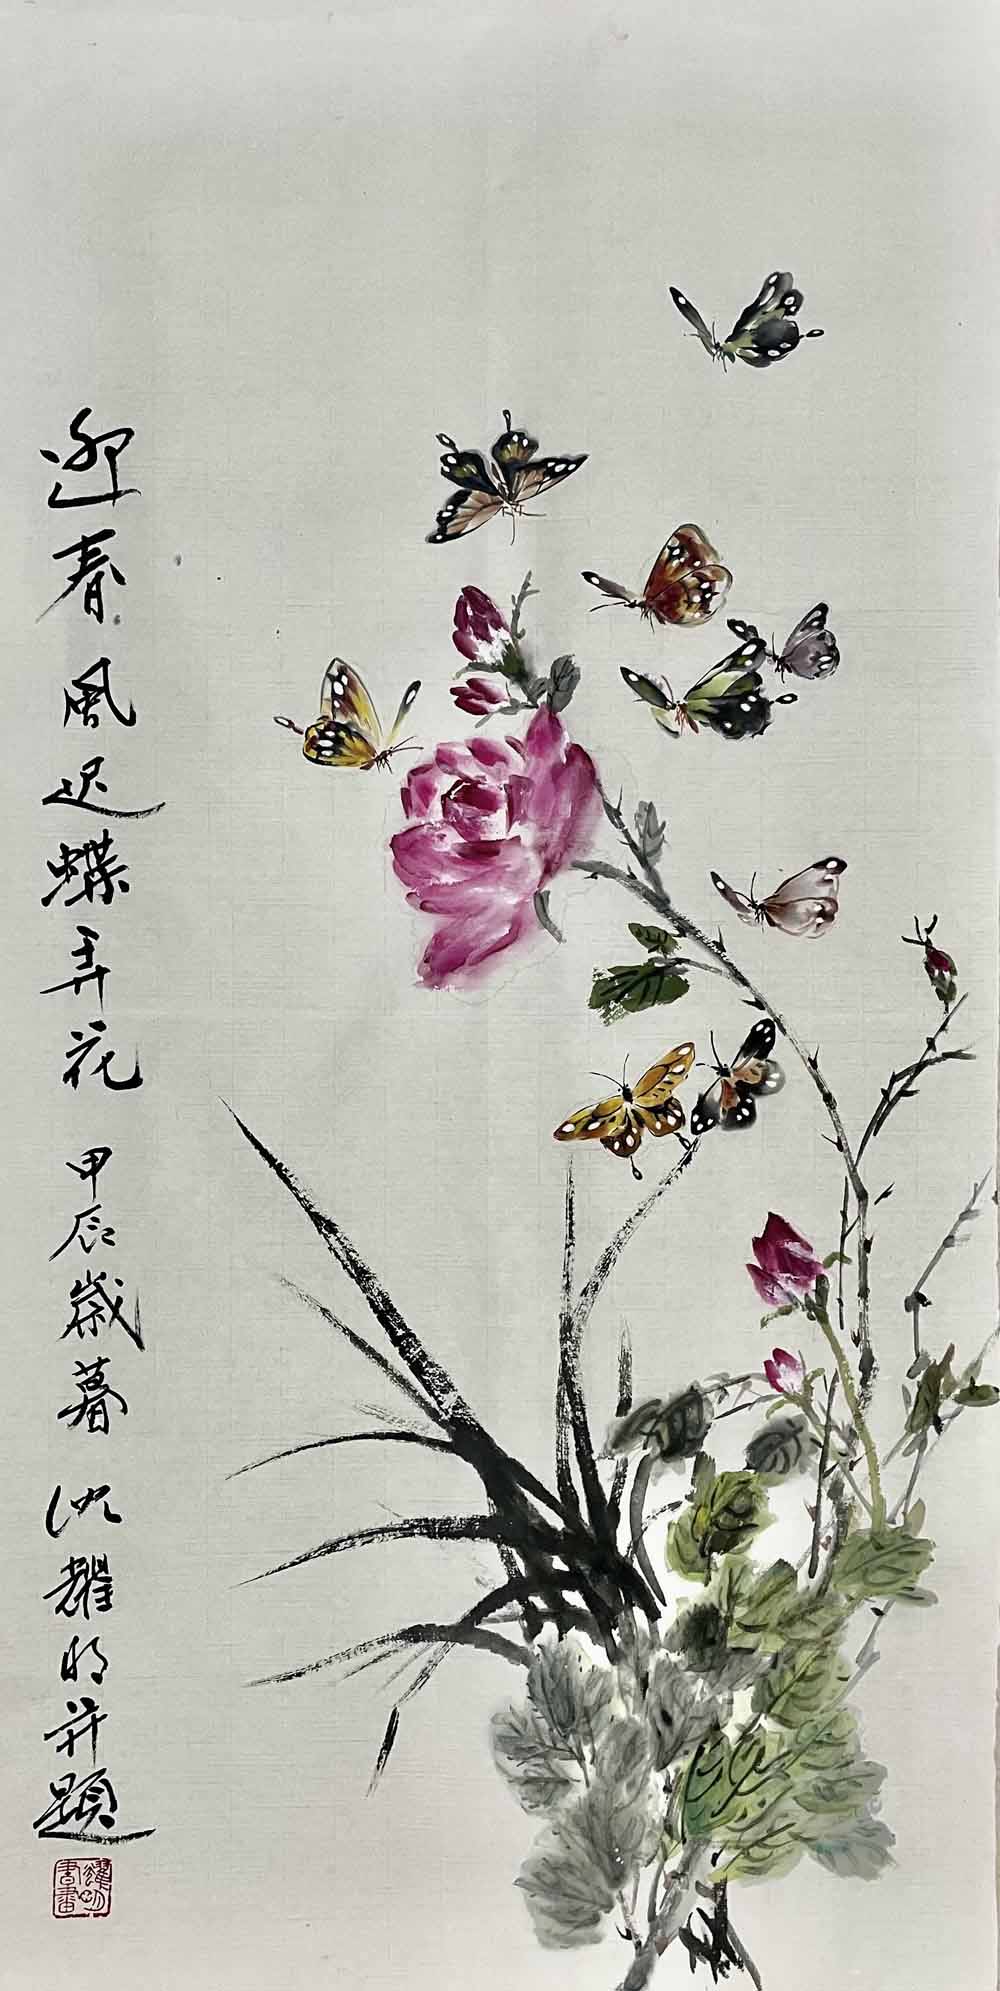 迎春風迟蝶弄花 甲辰歲暮 沈耀明并題
耀明書畫